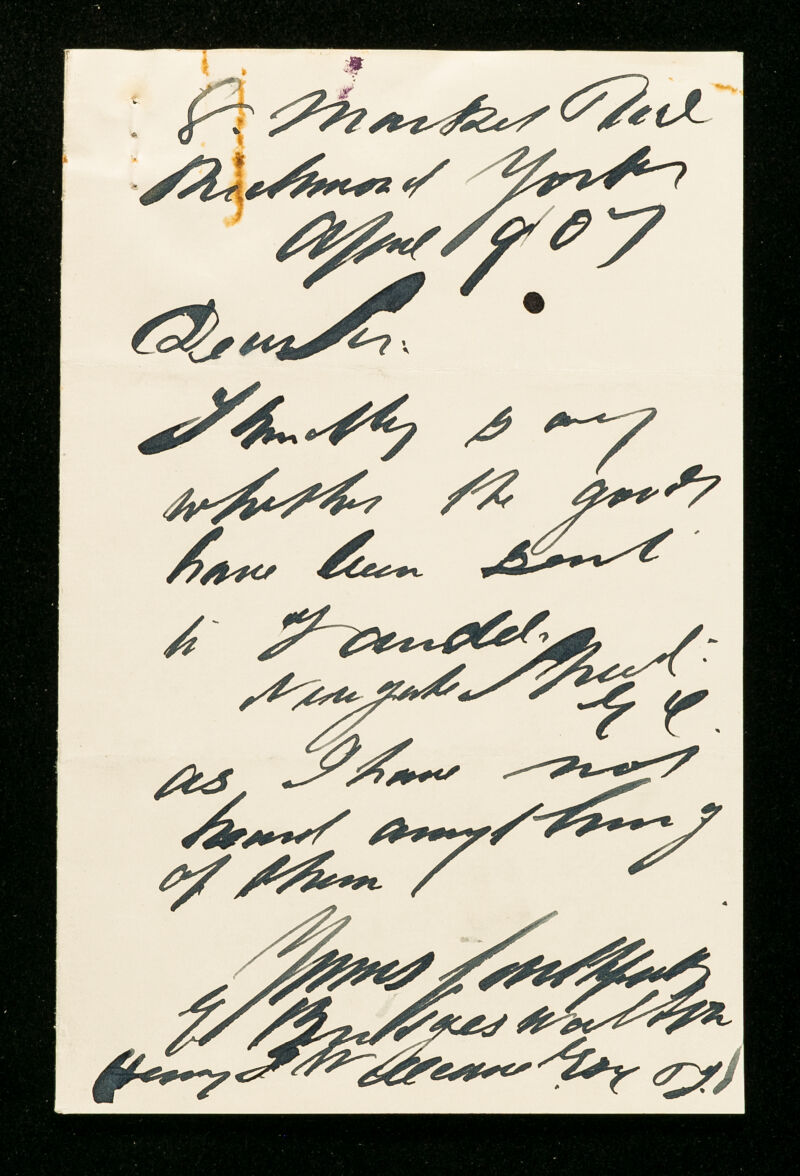 8. Market Place
Richmond Yorks
April 9/07
Dear Sir.
Kindly say
whether the goods
have been sent
to
Newgate Street.
E C.
as I have not
heard anything
of them
Yours faithfully
E Bridges Walton
Henry S Wellcome Esq